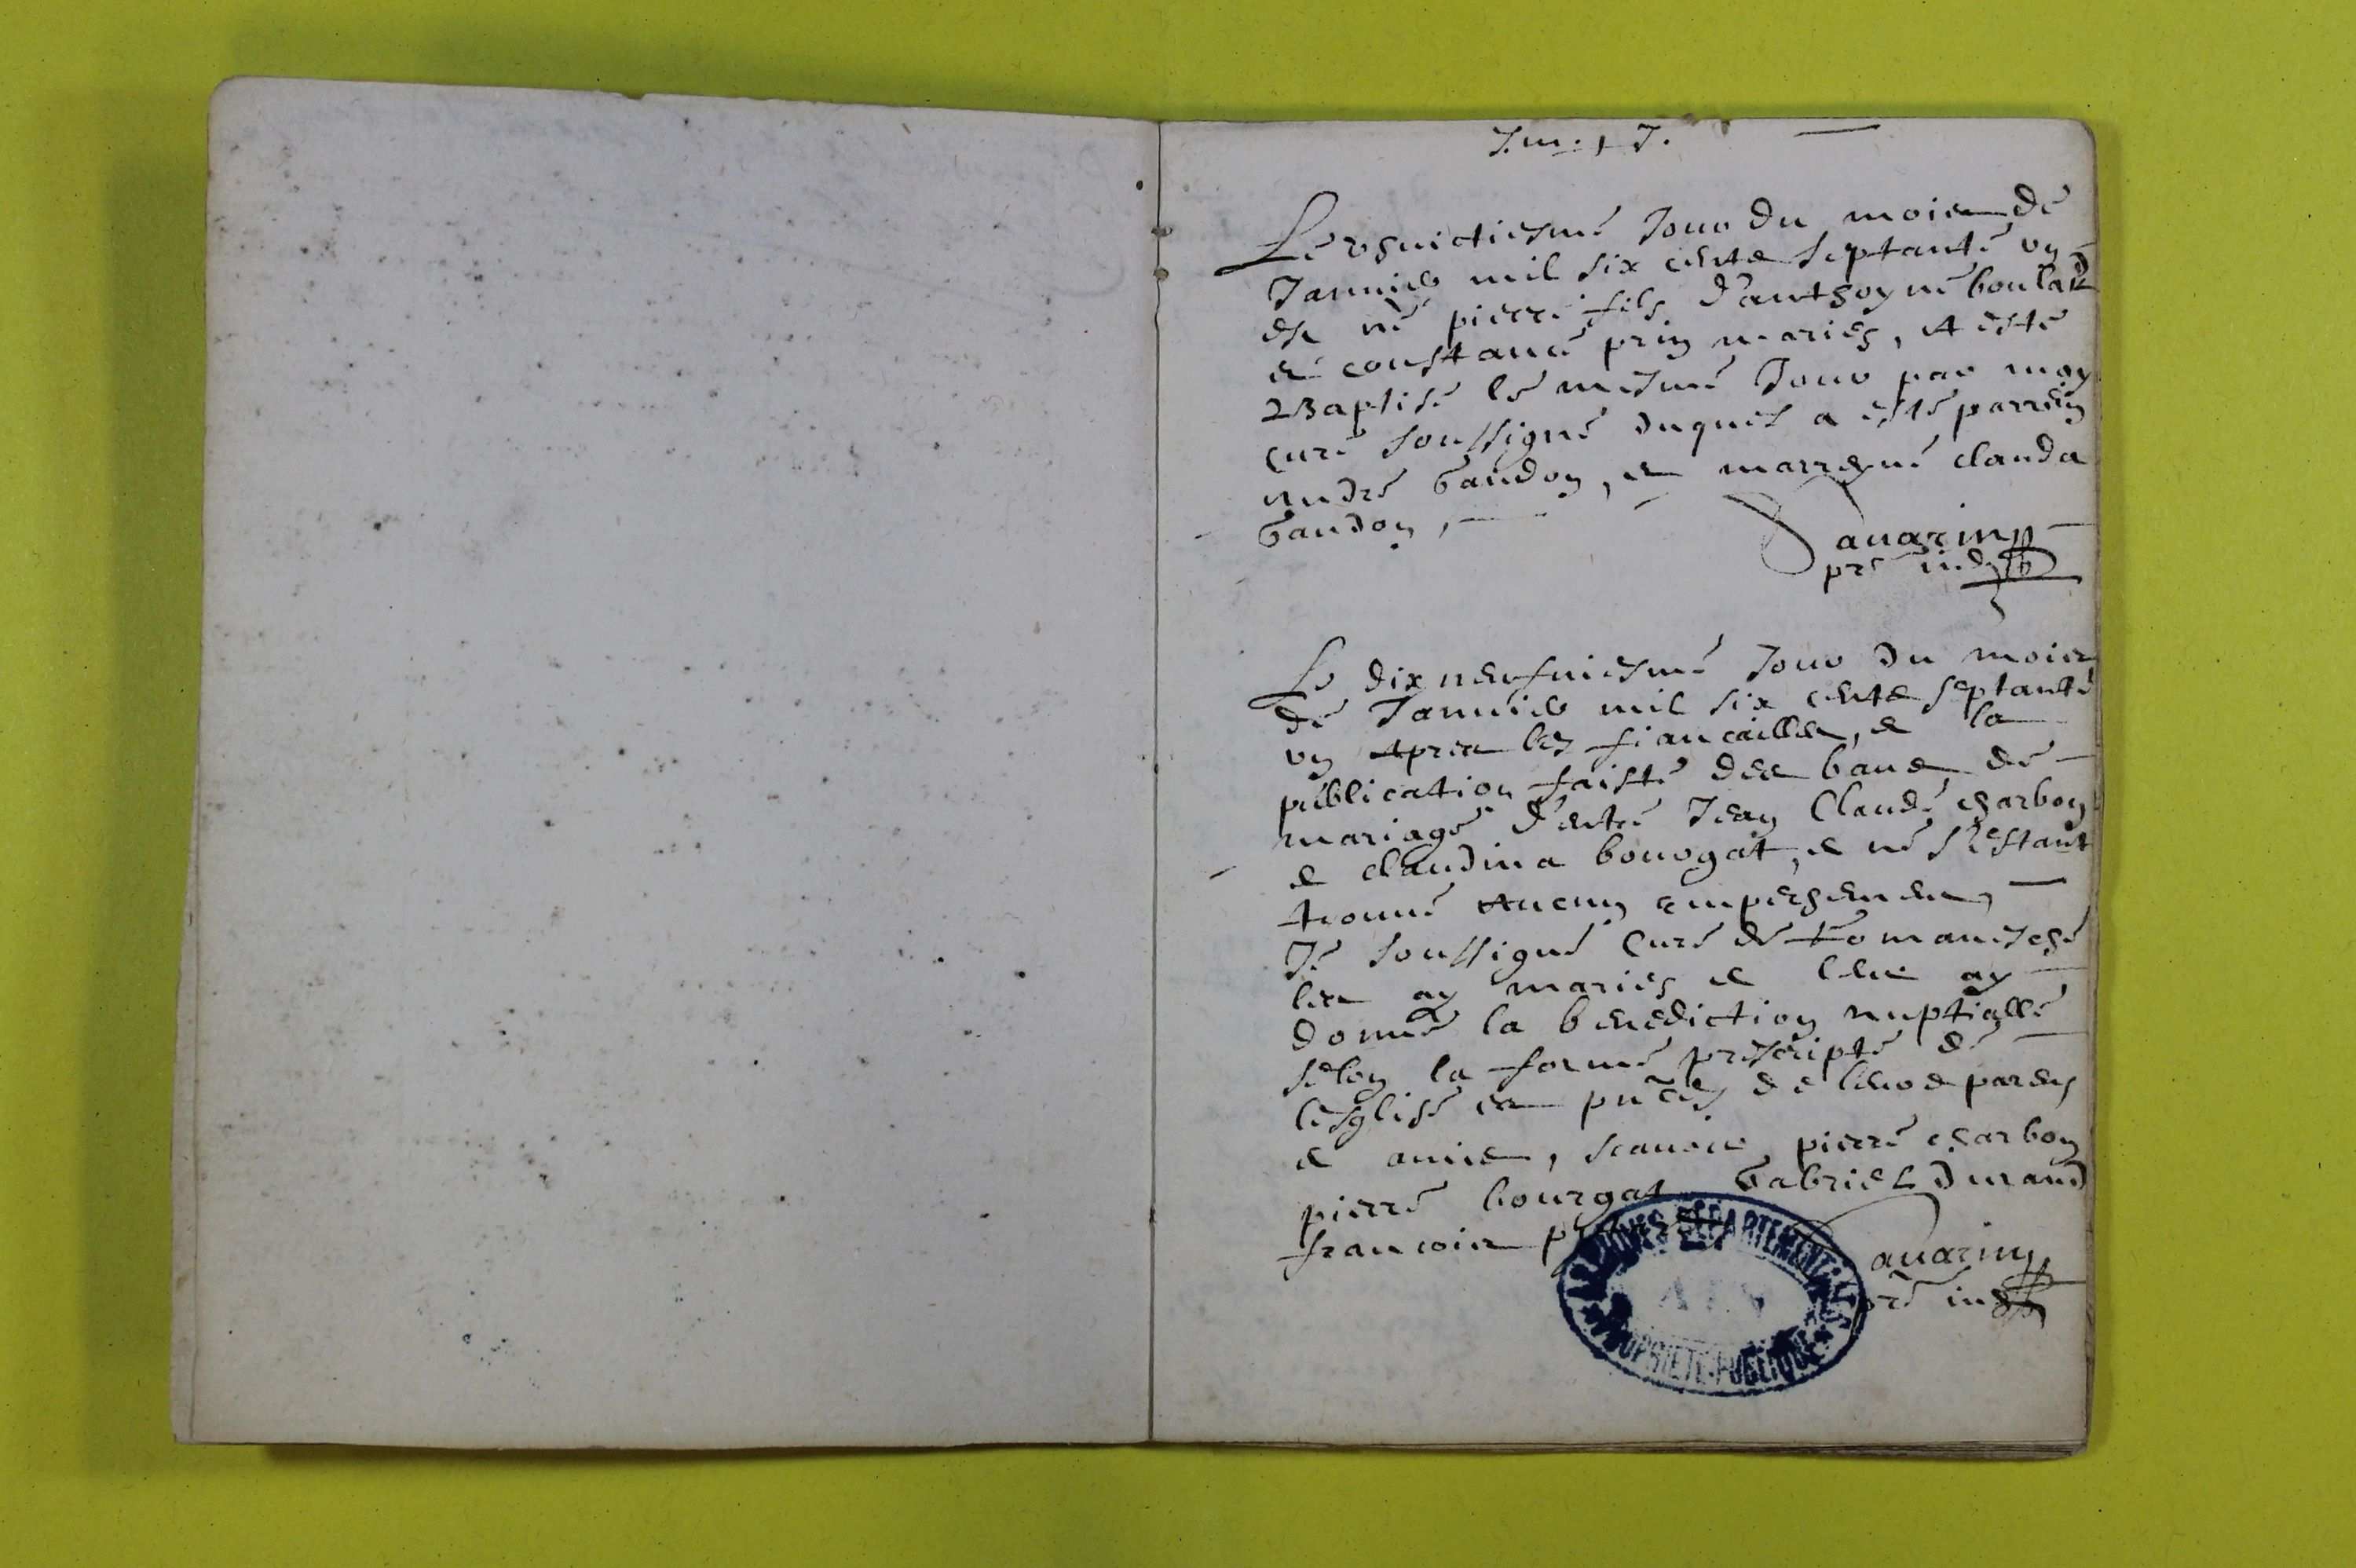 J. m. + J.
Le vhuictiesme Jour du mois de
Januier mil six cents septante vn
est né pierre fils d'anthoyne boulard
et constance prin mariés, et esté
Baptisé le mesme Jour par moy
curé soussigné duquel a esté parrein
andré Gaudon, et marreyne clauda
Gaudon,
auarin
pre indigne
Le dixneufuiesme Jour du mois
de Januier mil six cents septante
vn apres les fiancailles, et la
publication faiste des bans de
mariage d'entre Jean Claude charbon
et claudina bourgat, et ne s'estant
trouué aucun empeschement,
Je soussigné Curé de
les ay mariés et leur ay
donné la benediction nuptialle
selon la forme prescripte de
lesglise en pñce de leurs parens
et amis, scauoir pierre charbon
pierre bourgat Gabriel Durand
francois
auarin
pre indigne
ARCHIVES DÉPARTEMENTALES
AIN
PROPRIÉTÉ PUBLIQUE